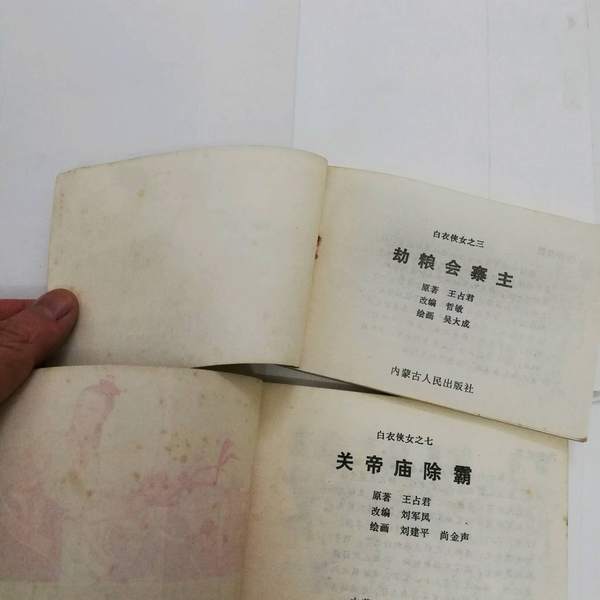 白衣侠女之三
劫粮会寨主
原著 王占君
改编 哲敏
绘画 吴大成
内蒙古人民出版社
白衣侠女之七
关帝庙除霸
原著 王占君
改编 刘军凤
绘画 刘建平 尚金声